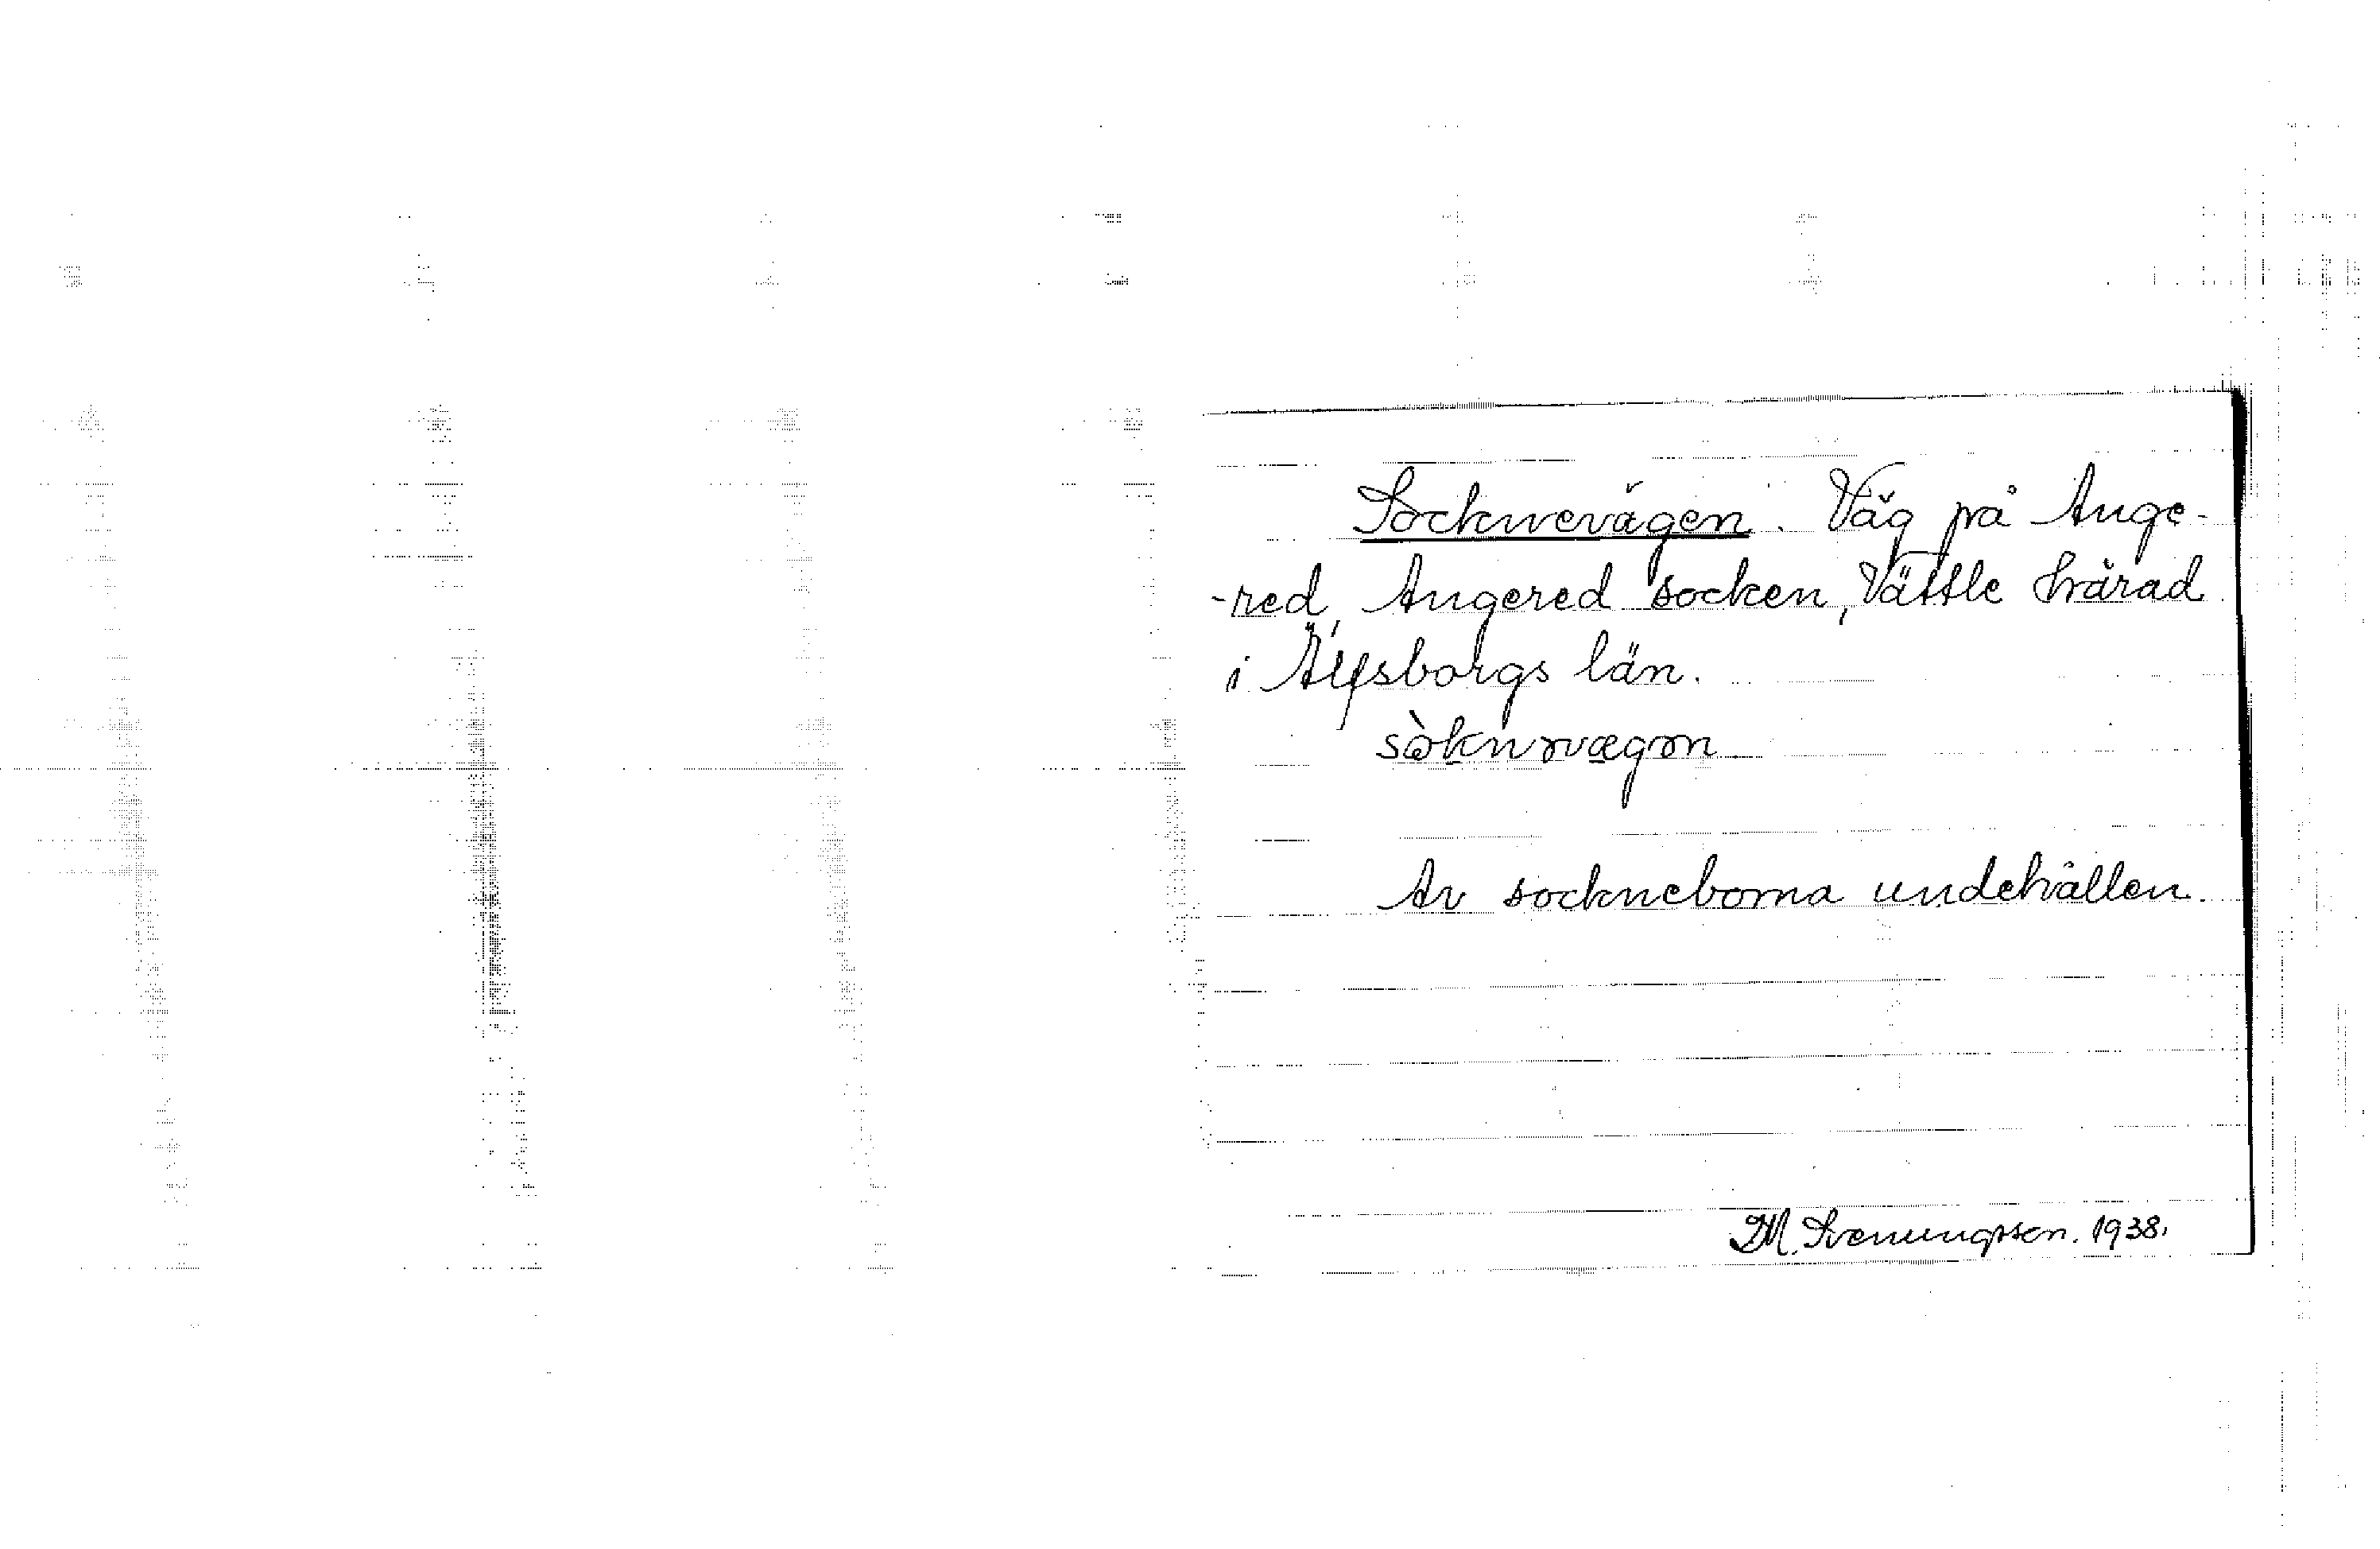 Socknevägen. Väg på Ange-
-red, Angered socken, Vättle härad
i Älfsborgs län.
Av sockneborna undehållen.
M. Svenungsson. 1938.